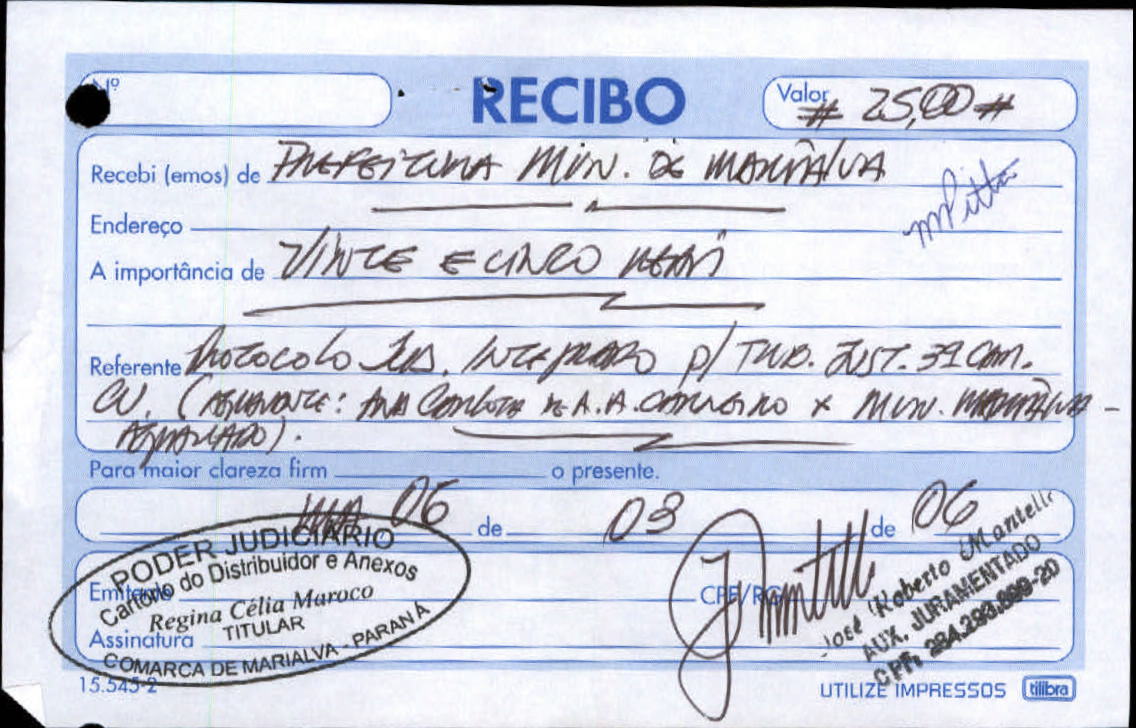 Nº
RECIBO
Valor # 25,00 #
Recebi (emos) de PREFEITURA MUN. DE MARIALVA
mPitta
Endereço
A importância de VINTE E CINCO REAIS
Referente PROTOCOLO JUD. INTEGRADO P/ TRIB. JUST. 3ª CAM.
CIV. (AGRAVANTE: ANA CARLOTA DE A. A. CARNEIRO X MUN. MARIALVA -
AGRAVADO).
Para maior clareza firm o presente.
MVA 06 de 03 de 06
PODER JUDICIÁRIO
Cartório do Distribuidor e Anexos
Regina Célia Maroco
TITULAR
COMARCA DE MARIALVA - PARANÁ
Emitente
CPF/RG
Assinatura
José Roberto Mantelli
AUX. JURAMENTADO
15.545-2
UTILIZE IMPRESSOS tilibra